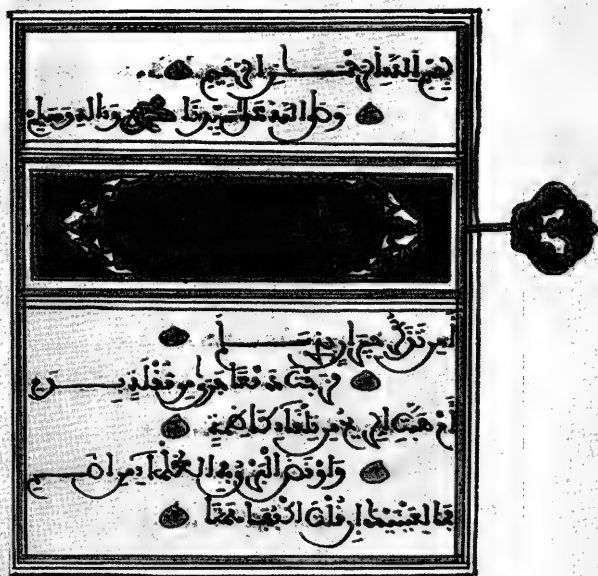 بسم الله الرحمن الرحيم
وصلى الله على سيدنا محمد وءاله وسلم
أمن تذكر جيران بذي سلم
مزجت دمعا جرى من مقلة بدم
أم هبت الريح من تلقاء كاظمة
وأومض البرق في الظلماء من إضم
فما لعينيك إن قلت اكففا همتا